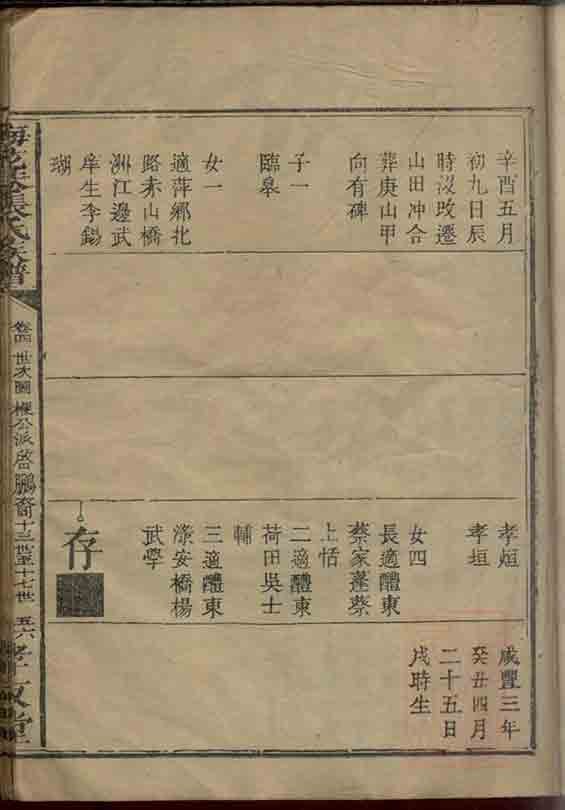 辛酉五月
初九日辰
時沒改遷
山田冲合
葬庚山甲
向有碑
子一
臨皋
女一
適萍鄉北
路赤山橋
洲江邊武
庠生李錫
瑚
孝烜
孝垣
女四
長適醴東
蔡家蓬蔡
上恬
二適醴東
荷田吳士
輔
三適醴東
漆安橋楊
武學
存
咸豐三年
癸丑四月
二十五日
戌時生
張氏族譜
卷四 世次圖 公派啓鵬裔十三世至十七世 五六
堂